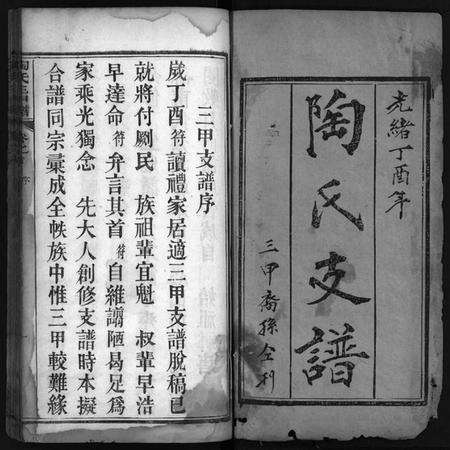 光緒丁酉年
陶氏支譜
三甲裔孫仝刋
三甲支譜序
歲丁酉符讀禮家居適三甲支譜脫稿已
就將付劂民 族祖輩宜魁 叔輩早浩
早達命符弁言其首符自維謭陋曷足爲
家乘光獨念 先大人創修支譜時本擬
合譜同宗彙成全帙族中惟三甲較難緣